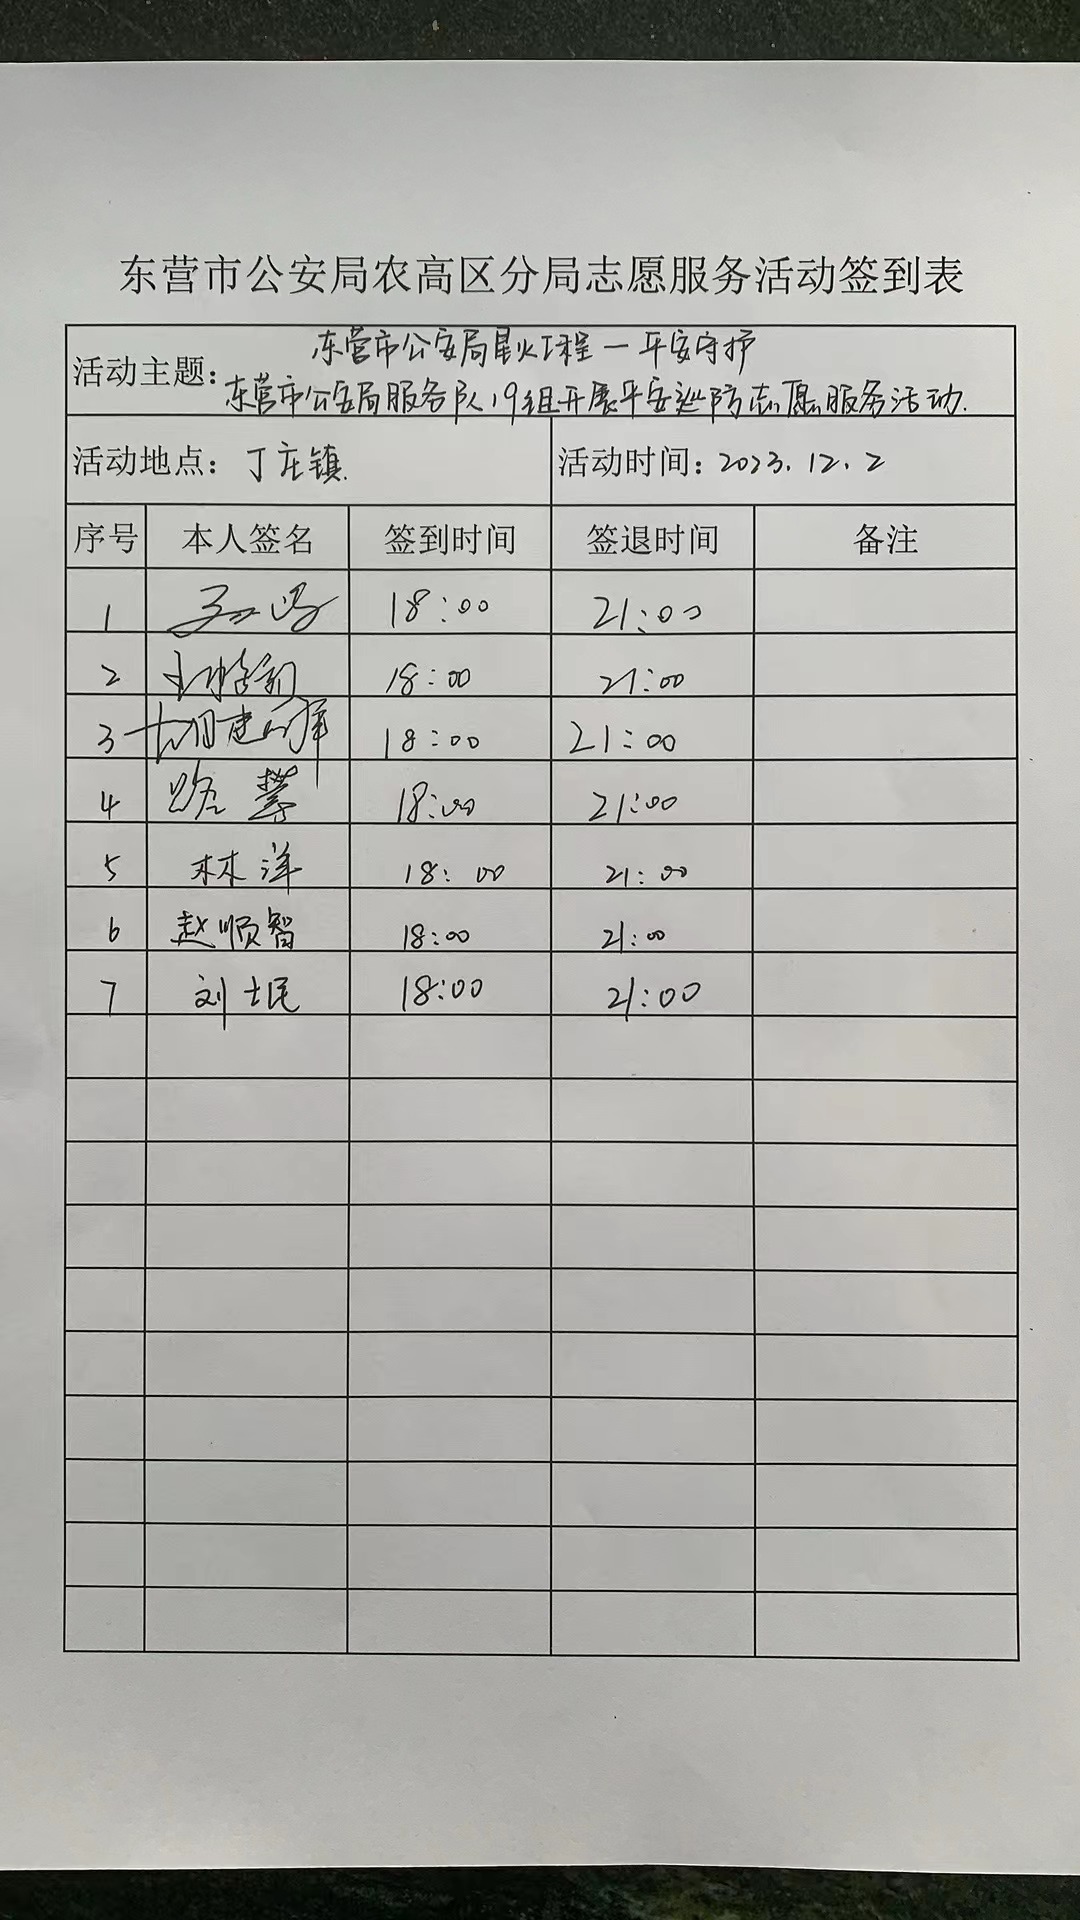 东营市公安局农高区分局志愿服务活动签到表
活动主题: 东营市公安局星火工程—平安守护
东营市公安局服务队19组开展平安巡防志愿服务活动.
活动地点: 丁庄镇. 活动时间: 2023.12.2
序号 本人签名 签到时间 签退时间 备注
1 18:00 21:00
2 18:00 21:00
3 18:00 21:00
4 18:00 21:00
5 林洋 18:00 21:00
6 赵顺智 18:00 21:00
7 刘士民 18:00 21:00